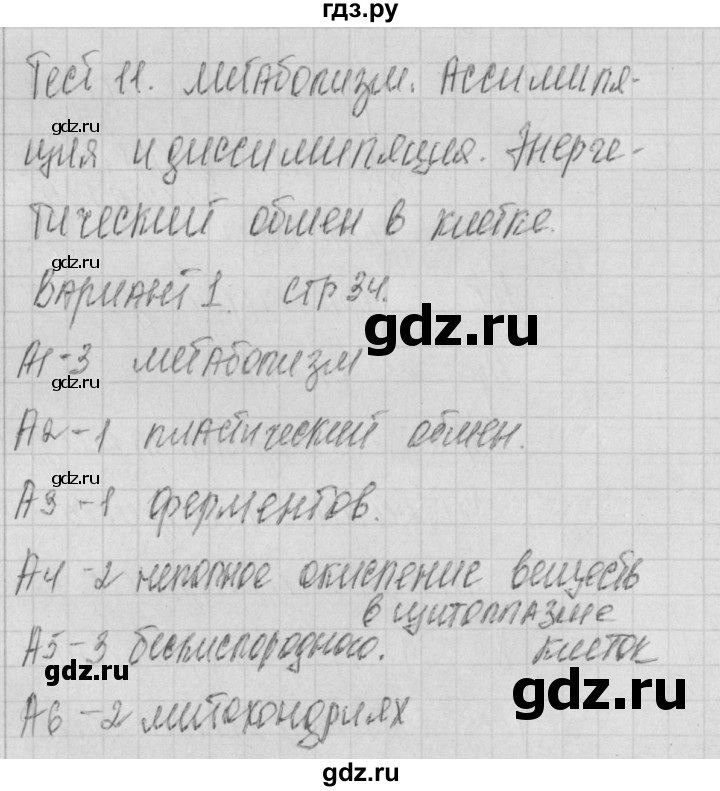 гдз.ру
Тест 11. Метаболизм. Ассимиля-
gdz.ru
ция и диссимиляция. Энерге-
gdz.ru
тический обмен в клетке.
gdz.ru
Вариант 1. стр 34.
gdz.ru
А1-3 метаболизм
gdz.ru
А2-1 пластический обмен.
gdz.ru
А3-1 ферментов.
gdz.ru
А4-2 неполное окисление веществ
в цитоплазме
А5-3 бескислородного. клеток
gdz.ru
gdz.ru
А6-2 митохондриях
gdz.ru